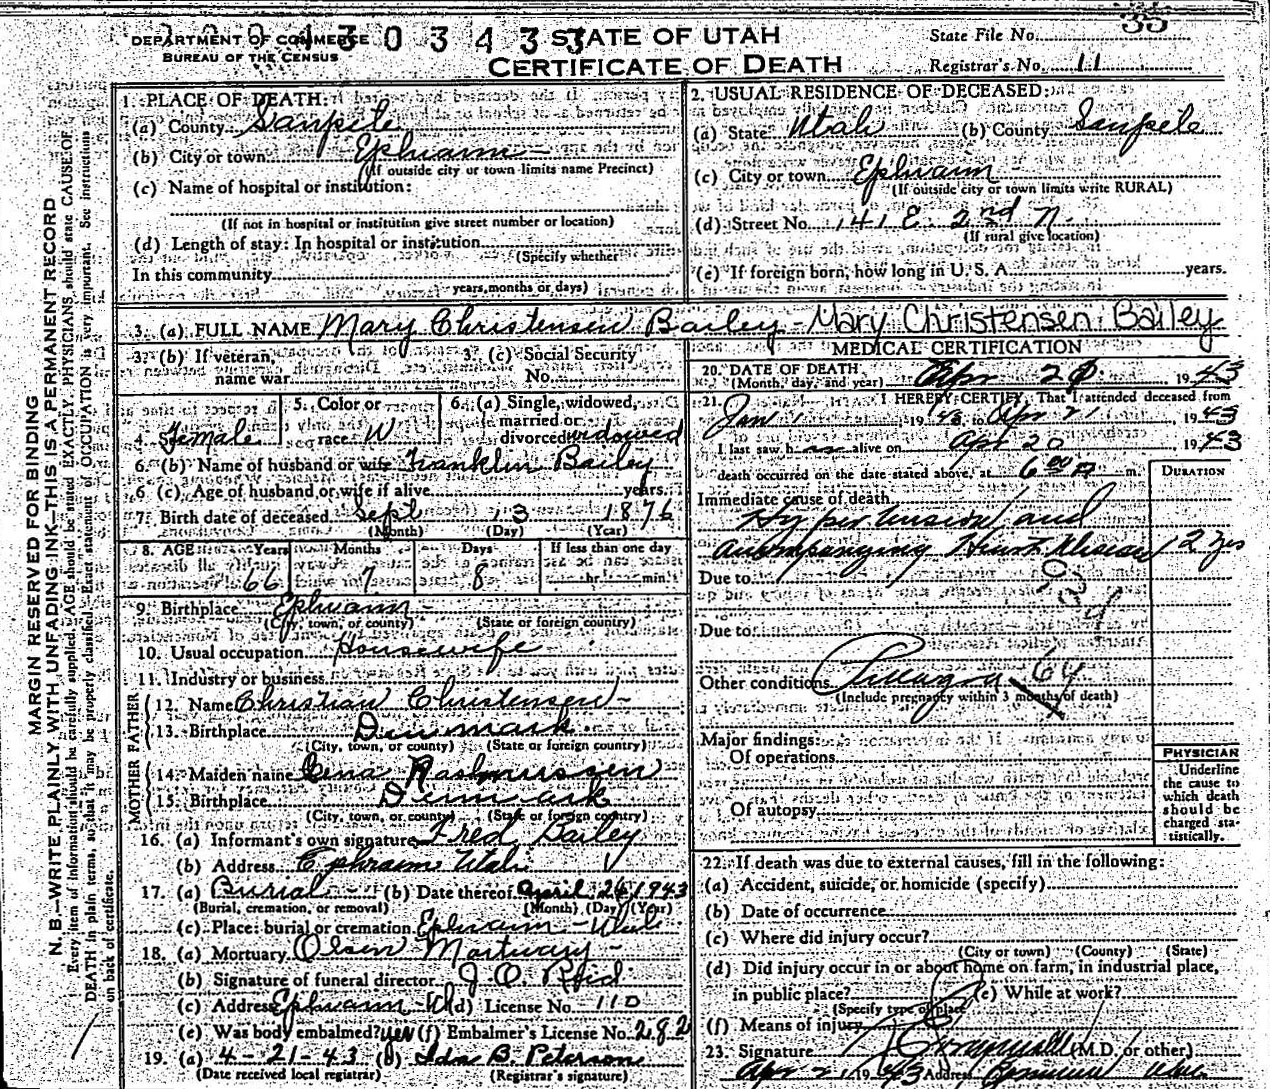 35
DEPARTMENT OF COMMERCE
BUREAU OF THE CENSUS
30343
STATE OF UTAH
CERTIFICATE OF DEATH
State File No.
Registrar's No. 11
MARGIN RESERVED FOR BINDING
N. B.—WRITE PLAINLY WITH UNFADING INK—THIS IS A PERMANENT RECORD
Every item of information should be carefully supplied. AGE should be stated EXACTLY. PHYSICIANS should state CAUSE OF
DEATH in plain terms, so that it may be properly classified. Exact statement of OCCUPATION is very important. See instructions
on back of certificate.
1. PLACE OF DEATH:
(a) County Sanpete
(b) City or town Ephraim
(If outside city or town limits name Precinct)
(c) Name of hospital or institution:
(If not in hospital or institution give street number or location)
(d) Length of stay: In hospital or institution
(Specify whether
In this community
years, months or days)
2. USUAL RESIDENCE OF DECEASED:
(a) State Utah (b) County Sanpete
(c) City or town Ephraim
(If outside city or town limits write RURAL)
(d) Street No. 141 E. 2nd N.
(If rural give location)
(e) If foreign born, how long in U. S. A. years.
3. (a) FULL NAME Mary Christensen Bailey - Mary Christensen Bailey
3. (b) If veteran,
name war
3. (c) Social Security
No.
4. Sex Female
5. Color or
race W
6. (a) Single, widowed,
married or
divorced widowed
6. (b) Name of husband or wife Franklin Bailey
6. (c) Age of husband or wife if alive years.
7. Birth date of deceased Sept 13 1876
(Month) (Day) (Year)
8. AGE Years Months Days If less than one day
66 7 8 hr. min.
9. Birthplace Ephraim
(City, town, or county) (State or foreign country)
10. Usual occupation Housewife
11. Industry or business
FATHER
12. Name Christian Christensen
13. Birthplace Denmark
(City, town, or county) (State or foreign country)
MOTHER
14. Maiden name Rasmussen
15. Birthplace Denmark
(City, town, or county) (State or foreign country)
16. (a) Informant's own signature Fred Bailey
(b) Address Ephraim Utah
17. (a) Burial (b) Date thereof April 24 1943
(Burial, cremation, or removal) (Month) (Day) (Year)
(c) Place: burial or cremation Ephraim - Utah
18. (a) Mortuary Olsen Mortuary
(b) Signature of funeral director
(c) Address Ephraim (d) License No. 110
(e) Was body embalmed? yes (f) Embalmer's License No. 282
19. (a) 4-21-43 (b) Ida B. Peterson
(Date received local registrar) (Registrar's signature)
MEDICAL CERTIFICATION
20. DATE OF DEATH Apr 1943
(Month, day, and year)
21. I HEREBY CERTIFY, That I attended deceased from
Jan 1 1943 to Apr 21, 1943
I last saw h alive on Apr 20, 1943
death occurred on the date stated above, at 6:00 m.
DURATION
Immediate cause of death
Hypertension and
accompanying Heart Disease 12 yrs
Due to
93d
Due to
Other conditions
(Include pregnancy within 3 months of death)
Major findings:
Of operations
Of autopsy
PHYSICIAN
Underline
the cause to
which death
should be
charged sta-
tistically.
22. If death was due to external causes, fill in the following:
(a) Accident, suicide, or homicide (specify)
(b) Date of occurrence
(c) Where did injury occur?
(City or town) (County) (State)
(d) Did injury occur in or about home on farm, in industrial place,
in public place? (e) While at work?
(Specify type of place
(f) Means of injury
23. Signature (M.D. or other)
Apr 21, 1943 Address